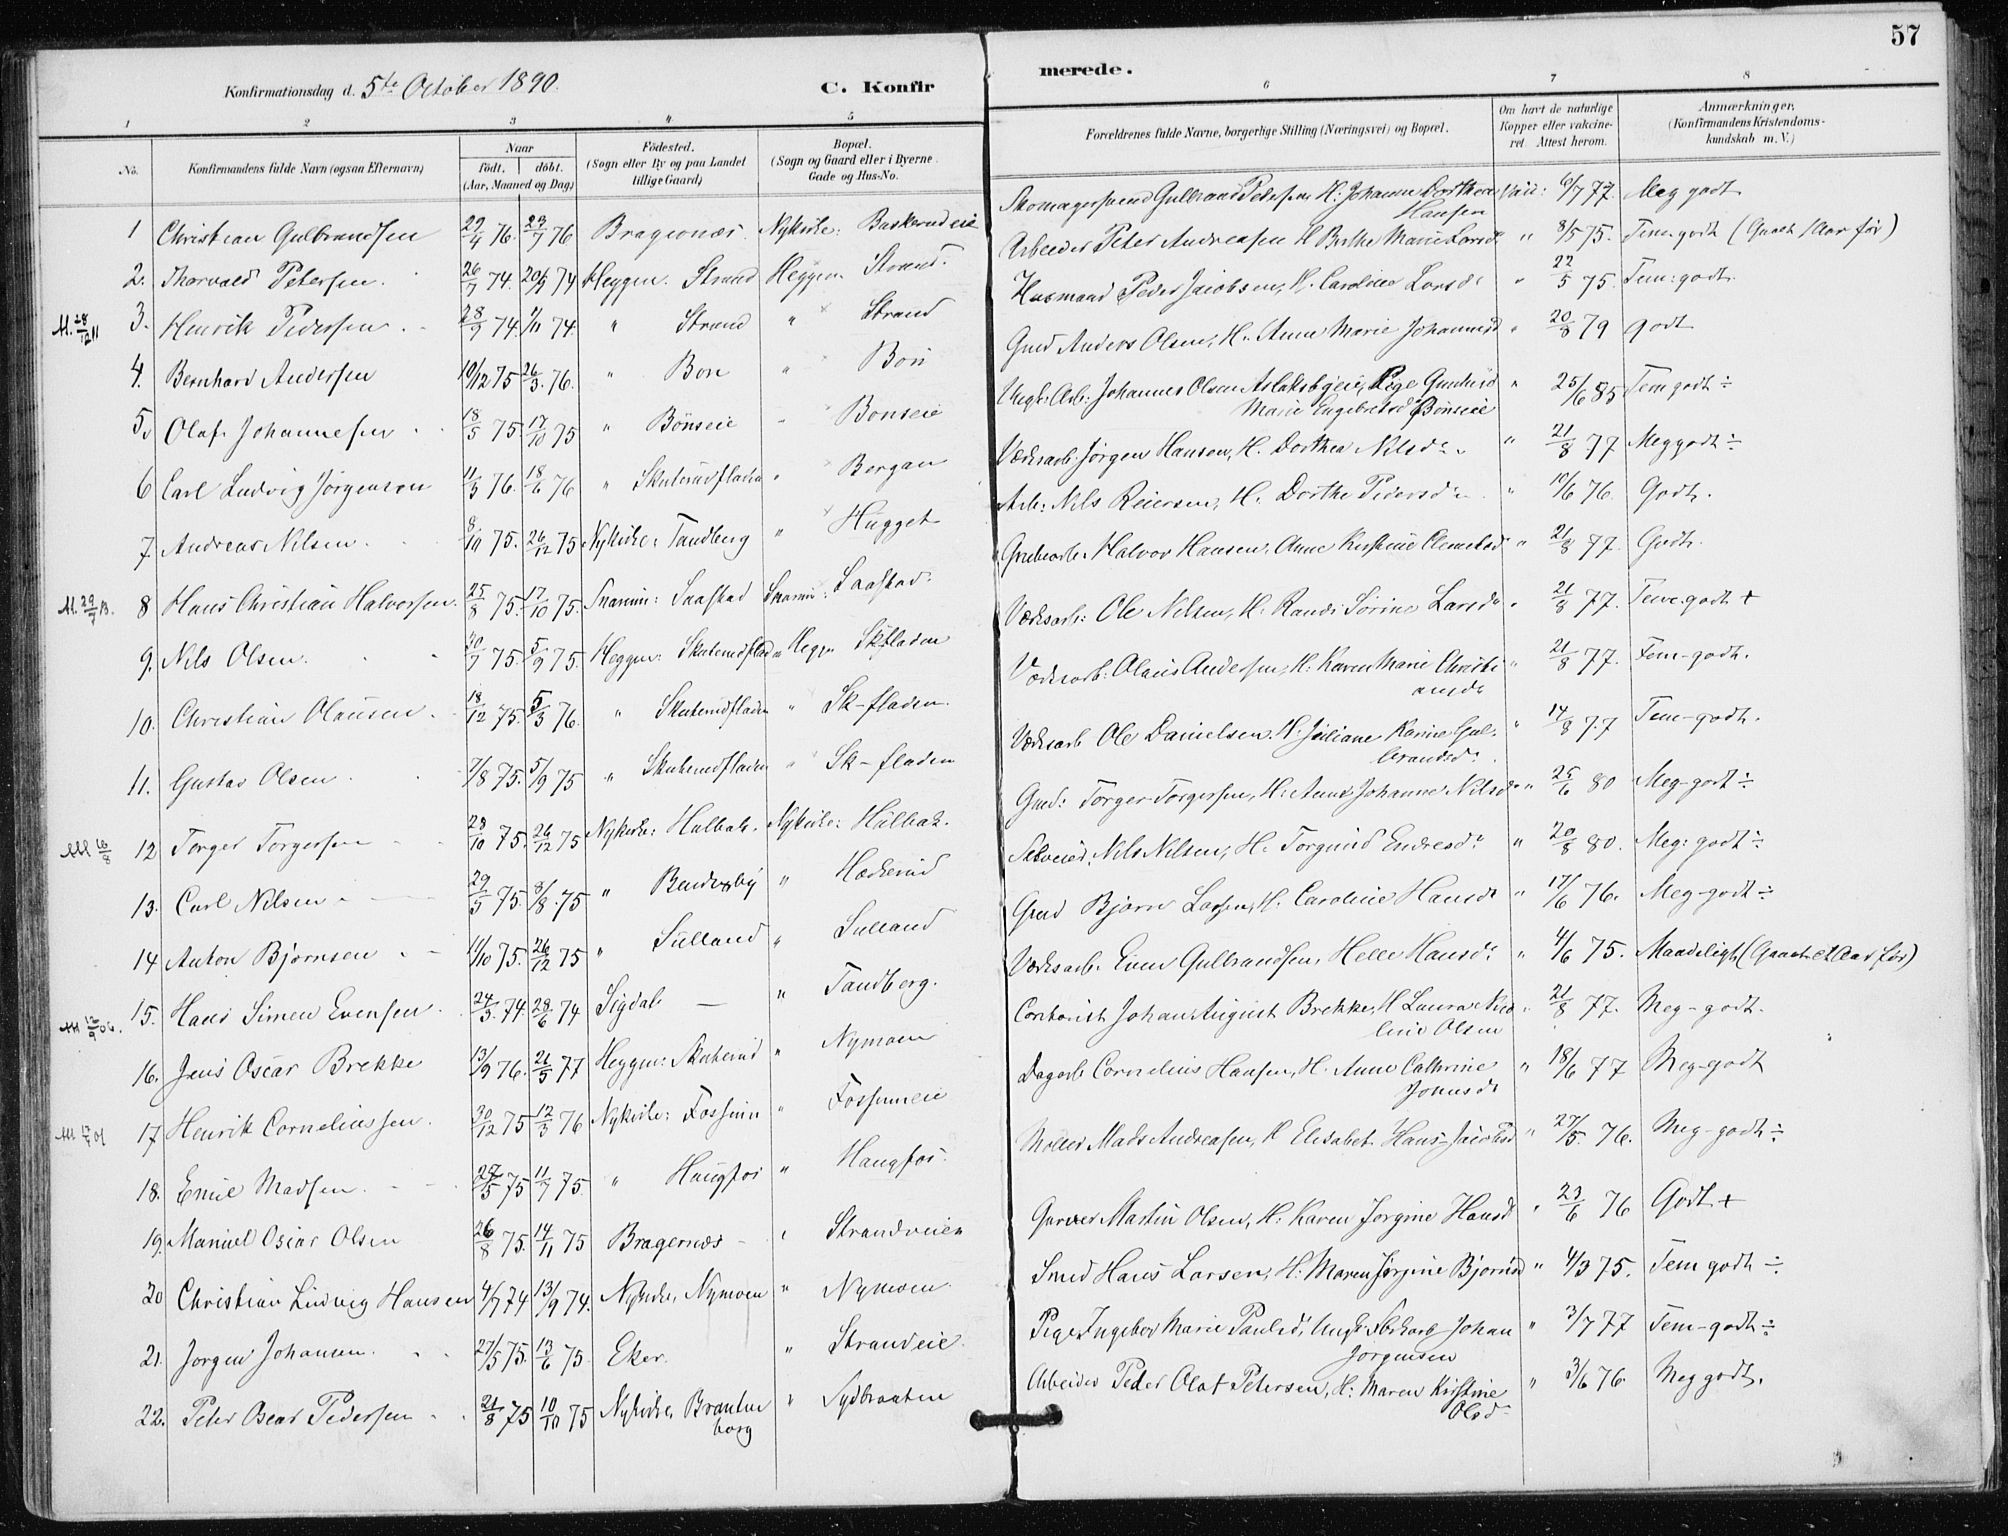 57
Konfirmationsdag d. 5te October 1890.
C. Konfirmerede.
1 2 3 4 5 6 7 8
No. Konfirmandens fulde Navn (ogsaa Efternavn)
Naar født. døbt. (Aar, Maaned og Dag)
Fødested. (Sogn eller By og paa Landet tillige Gaard)
Bopæl. (Sogn og Gaard eller i Byerne Gade og Hus-No.
Forældrenes fulde Navne, borgerlige Stilling (Næringsvei) og Bopæl.
Om havt de naturlige Kopper eller vakcineret. Attest herom.
Anmærkninger. (Konfirmandens Kristendomskundskab m. V.)
1 Christian Gulbrandsen 76. 76 Bragernæs. Nykirke: Buskerudeie Gulbrand Pedersen, H: Johanne Dorthea Hansen 6/7 77. Meg godt
2. Thorvald Petersen. 26/7 74. 20/9 74 Heggen. Strand Heggen Strand. Arbeider Peter Andreasen H. Berthe Marie Larsd. " 8/5 75. Tem. godt (Gaaet 1 Aar før)
3. Henrik Pedersen 28/9 74. 74. " Strand " Strand Husmand Peder Jacobsen, H. Caroline Larsd. " 22/5 75. Tem: godt.
4. Bernhard Andersen 10/12 75 26/3 76. " Bøn " Bøn Gmd Anders Olsen, H. Anne Marie Johannesd " 20/8 79 godt
5. Olaf Johannesen 18/5 75 17/10 75 " Bönseie " Bonseie Ungk: Arb: Johannes Olsen Aslaksbyeie, Pige Gunhild Marie Engebretsd Bönseie " 25/6 85 Tem godt ÷
6 Carl Ludvig Jörgensen 11/3 76. 18/6 76 " Skuterudfladen " Bergan Jørgen Hansen, H. Dorthea Nilsd. " 21/8 77 Meg godt ÷
7. Andreas Nilsen. 8/10 75. 26/12 75 Nykirke: Tandberg " Hugget Arb: Nils Reiersen, H. Dorthe Pedersd. " 10/6 76. Godt.
8 Hans Christian Halvorsen. 25/8 75. 17/10 75. Snarum: Saastad Snarum: Saastad. Grubearb. Halvor Hansen, Anne Kirstine " 21/8 77. Godt.
9. Nils Olsen. 30/7 75. 5/9 75. Heggen: Skuterudfladen Heggen Skfladen Ole Nilsen, H. Randi Sörine Larsd. " 21/8 77. Temm godt +
10. Christian Olausen. 18/12 75. 5/3 76. " Skuterudfladen " Sk-fladen. Olaus Andersen, H: Karen Marie Christiansd. " 21/8 77. Tem-godt.
11. Gustav Olsen 7/8 75. 5/9 75 " Skuterudfladen " Sk-fladen Ole Danielsen H: Juliane Karine Gulbrandsd. " 14/8 77 Tem-godt.
12 Torger Torgersen 75. 26/12 75 Nykirke: Holbak. Nykirke: Holbak. Gmd: Torger Torgersen, H: Anne Johanne Nilsd. " 25/6 80 Meg-godt ÷
13. Carl Nilsen 29/5 75. 8/8 75 " " Selveier Nils Nilsen, H. Torgund Endresd. " 20/8 80. Meg: godt ÷
14 Anton Bjørnsen 11/10 75. 26/12 75 " Sülland " Sulland Gmd Bjørn Larsen, H. Caroline Hansd. " 17/6 76. Meg-godt ÷
15. Hans Simen Evensen. 24/3 74. 28/6 74 Sigdal — " Tandberg. Even Gulbrandsen, Helle Hansd. " 4/6 75. Maadeligt (Gaaet et Aar før)
16. Jens Oscar Brekke 13/9 76. 21/5 77 Heggen: Skuterud " Nymoen Contorist Johan August Brekke, H Laura Olsen " 21/8 77. Meg-godt.
17 Henrik Corneliussen. 30/12 75 12/3 76 Nykirke: Fossum " Fossumeie Dagarb Cornelius Hansen, H. Anne Cathrine Jonasd. " 18/6 77 Meg-godt
18. Emil Madsen. 75 11/7 75. " Haugfos " Haugfos. Møller Mads Andreasen, H Elisabet Hans " 27/5 76. Meg-godt ÷
19. Manuel Oscar Olsen 26/8 75. 14/11 75 Bragernæs - " Strandveien Garver Martin Olsen, H: Karen Jorgine Hansd " 23/6 76 Godt +
20 Christian Ludvig Hansen 4/7 74 13/9 74. Nykirke, Nymoen " Nymoen Smed Hans Larsen, H: Maren Jørgine Bjornsd " 4/3 75. Tem godt ÷.
21. Jorgen Johansen. 27/5 75. 13/6 75. Eker. " Strandeie. Pige Ingebor Marie Paulsd, Ungk: Johan Jorgensen " 3/7 77 Tem-godt ÷
22. Peter Oscar Pedersen 21/8 75 10/10 75 Nykirke, Brandenborg " Sydbraaten Arbeider Peder Olaf Petersen, H: Maren Kristine Olsd. " 3/6 76. Meg godt.